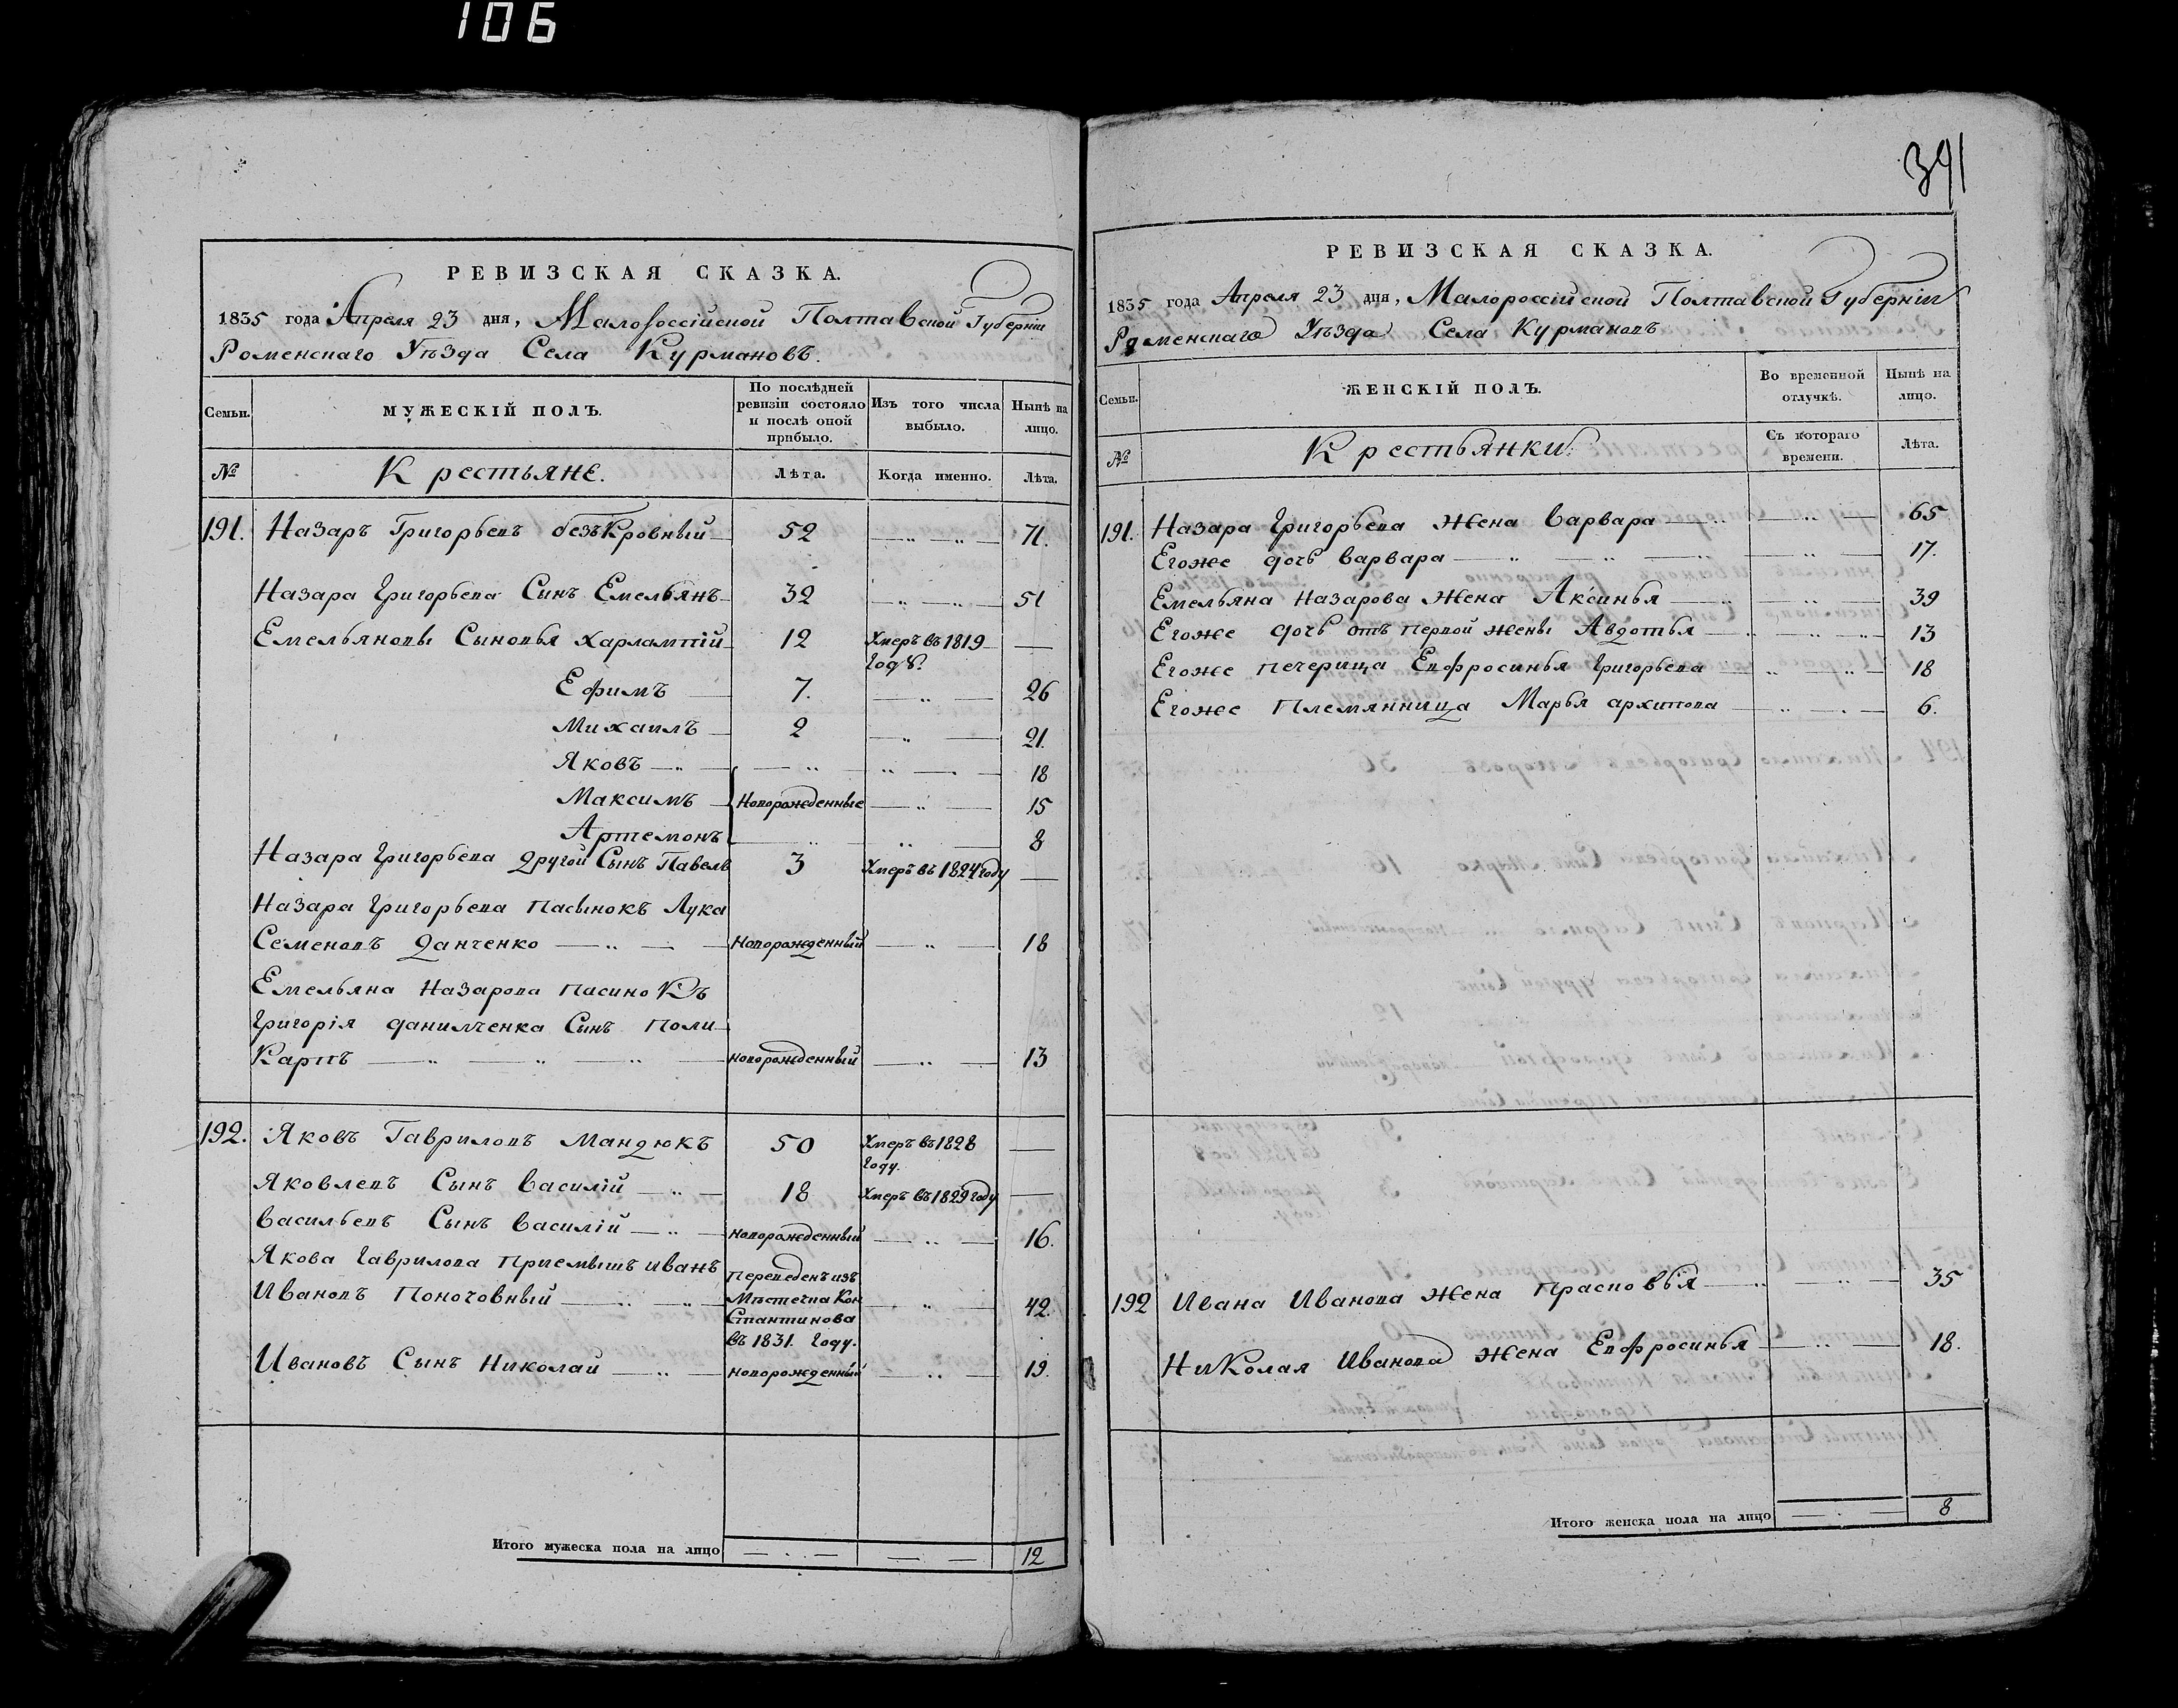 106
РЕВИЗСКАЯ СКАЗКА.
1835 года Апреля 23 дня, Малороссійской Полтавской Губерніи
Роменскаго Уѣзда Села Курмановъ.
Семьи.
МУЖЕСКІЙ ПОЛЪ.
По послѣдней ревизіи состояло и послѣ оной прибыло.
Изъ того числа выбыло.
Нынѣ на лицо.
№
Крестьяне.
Лѣта.
Когда именно.
Лѣта.
191. Назаръ Григорьевъ безъкровный 52 71.
Назара Григорьева Сынъ Емельянъ 32 51
Емельяновы Сыновья Харлампій 12 Умеръ въ 1819
году.
Ефимъ 7. 26
Михаилъ 2 21.
Яковъ 18
Максимъ Новорожденные 15
Артемонъ 8
Назара Григорьева другой Сынъ Павелъ 3 Умеръ въ 1824 году
Назара Григорьева Пасынокъ Лука
Семеновъ Данченко Новорожденный 18
Емельяна Назарова пасинокъ
Григорія данилченка Сынъ Поли-
Карпъ новорожденный 13
192. Яковъ Гавриловъ Мандюкъ 50 Умеръ въ 1828
году.
Яковлевъ Сынъ Василій 18 Умеръ въ 1829 году
Васильевъ Сынъ Василій новорожденный 16.
Якова Гаврилова Приемышъ иванъ
Ивановъ Поночовный
Переведенъ изъ
Мѣстечка Кон
стантинова 42.
въ 1831. Году.
Ивановъ Сынъ Николай новорожденный 19.
Итого мужеска пола на лицо 12
391
РЕВИЗСКАЯ СКАЗКА.
1835 года Апреля 23 дня, Малороссійской Полтавской Губерніи
Роменскаго Уѣзда Села Курмановъ
Семьи.
ЖЕНСКІЙ ПОЛЪ.
Во временной отлучкѣ.
Нынѣ на лицо.
№
Крестьянки.
Съ котораго времени.
Лѣта.
191. Назара Григорьева жена Варвара 65
Егоже дочь Варвара 17.
Емельяна Назарова Жена Аксинья 39
Егоже дочь отъ первой жены Авдотья 13
Егоже печерица Евфросинья Григорьева 18
Егоже Племянница Марья архипова 6.
192 Ивана Иванова жена Прасковья 35
Николая Иванова жена Евфросинья 18.
Итого женска пола на лицо 8